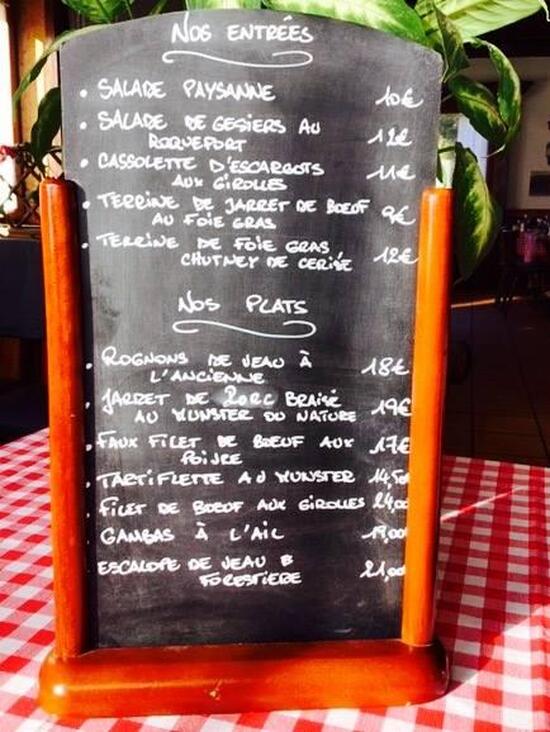 NOS ENTRÉES
• SALADE PAYSANNE 10€
• SALADE DE GESIERS AU
ROQUEFORT 12€
• CASSOLETTE D'ESCARGOTS 11€
AUX GIROLLES
• TERRINE DE JARRET DE BŒUF 9€
AU FOIE GRAS
• TERRINE DE FOIE GRAS 12€
CHUTNEY DE CERISE
NOS PLATS
• ROGNONS DE VEAU À 18€
L'ANCIENNE
• JARRET DE PORC BRAISÉ 19€
AU MUNSTER OU NATURE
• FAUX FILET DE BŒUF AUX 17€
POIVRE
• TARTIFLETTE AU MUNSTER 14,50
FILET DE BOEUF AUX GIROLLES 24,00
GAMBAS À L'AIL 19,00
ESCALOPE DE VEAU 21,00
FORESTIERE